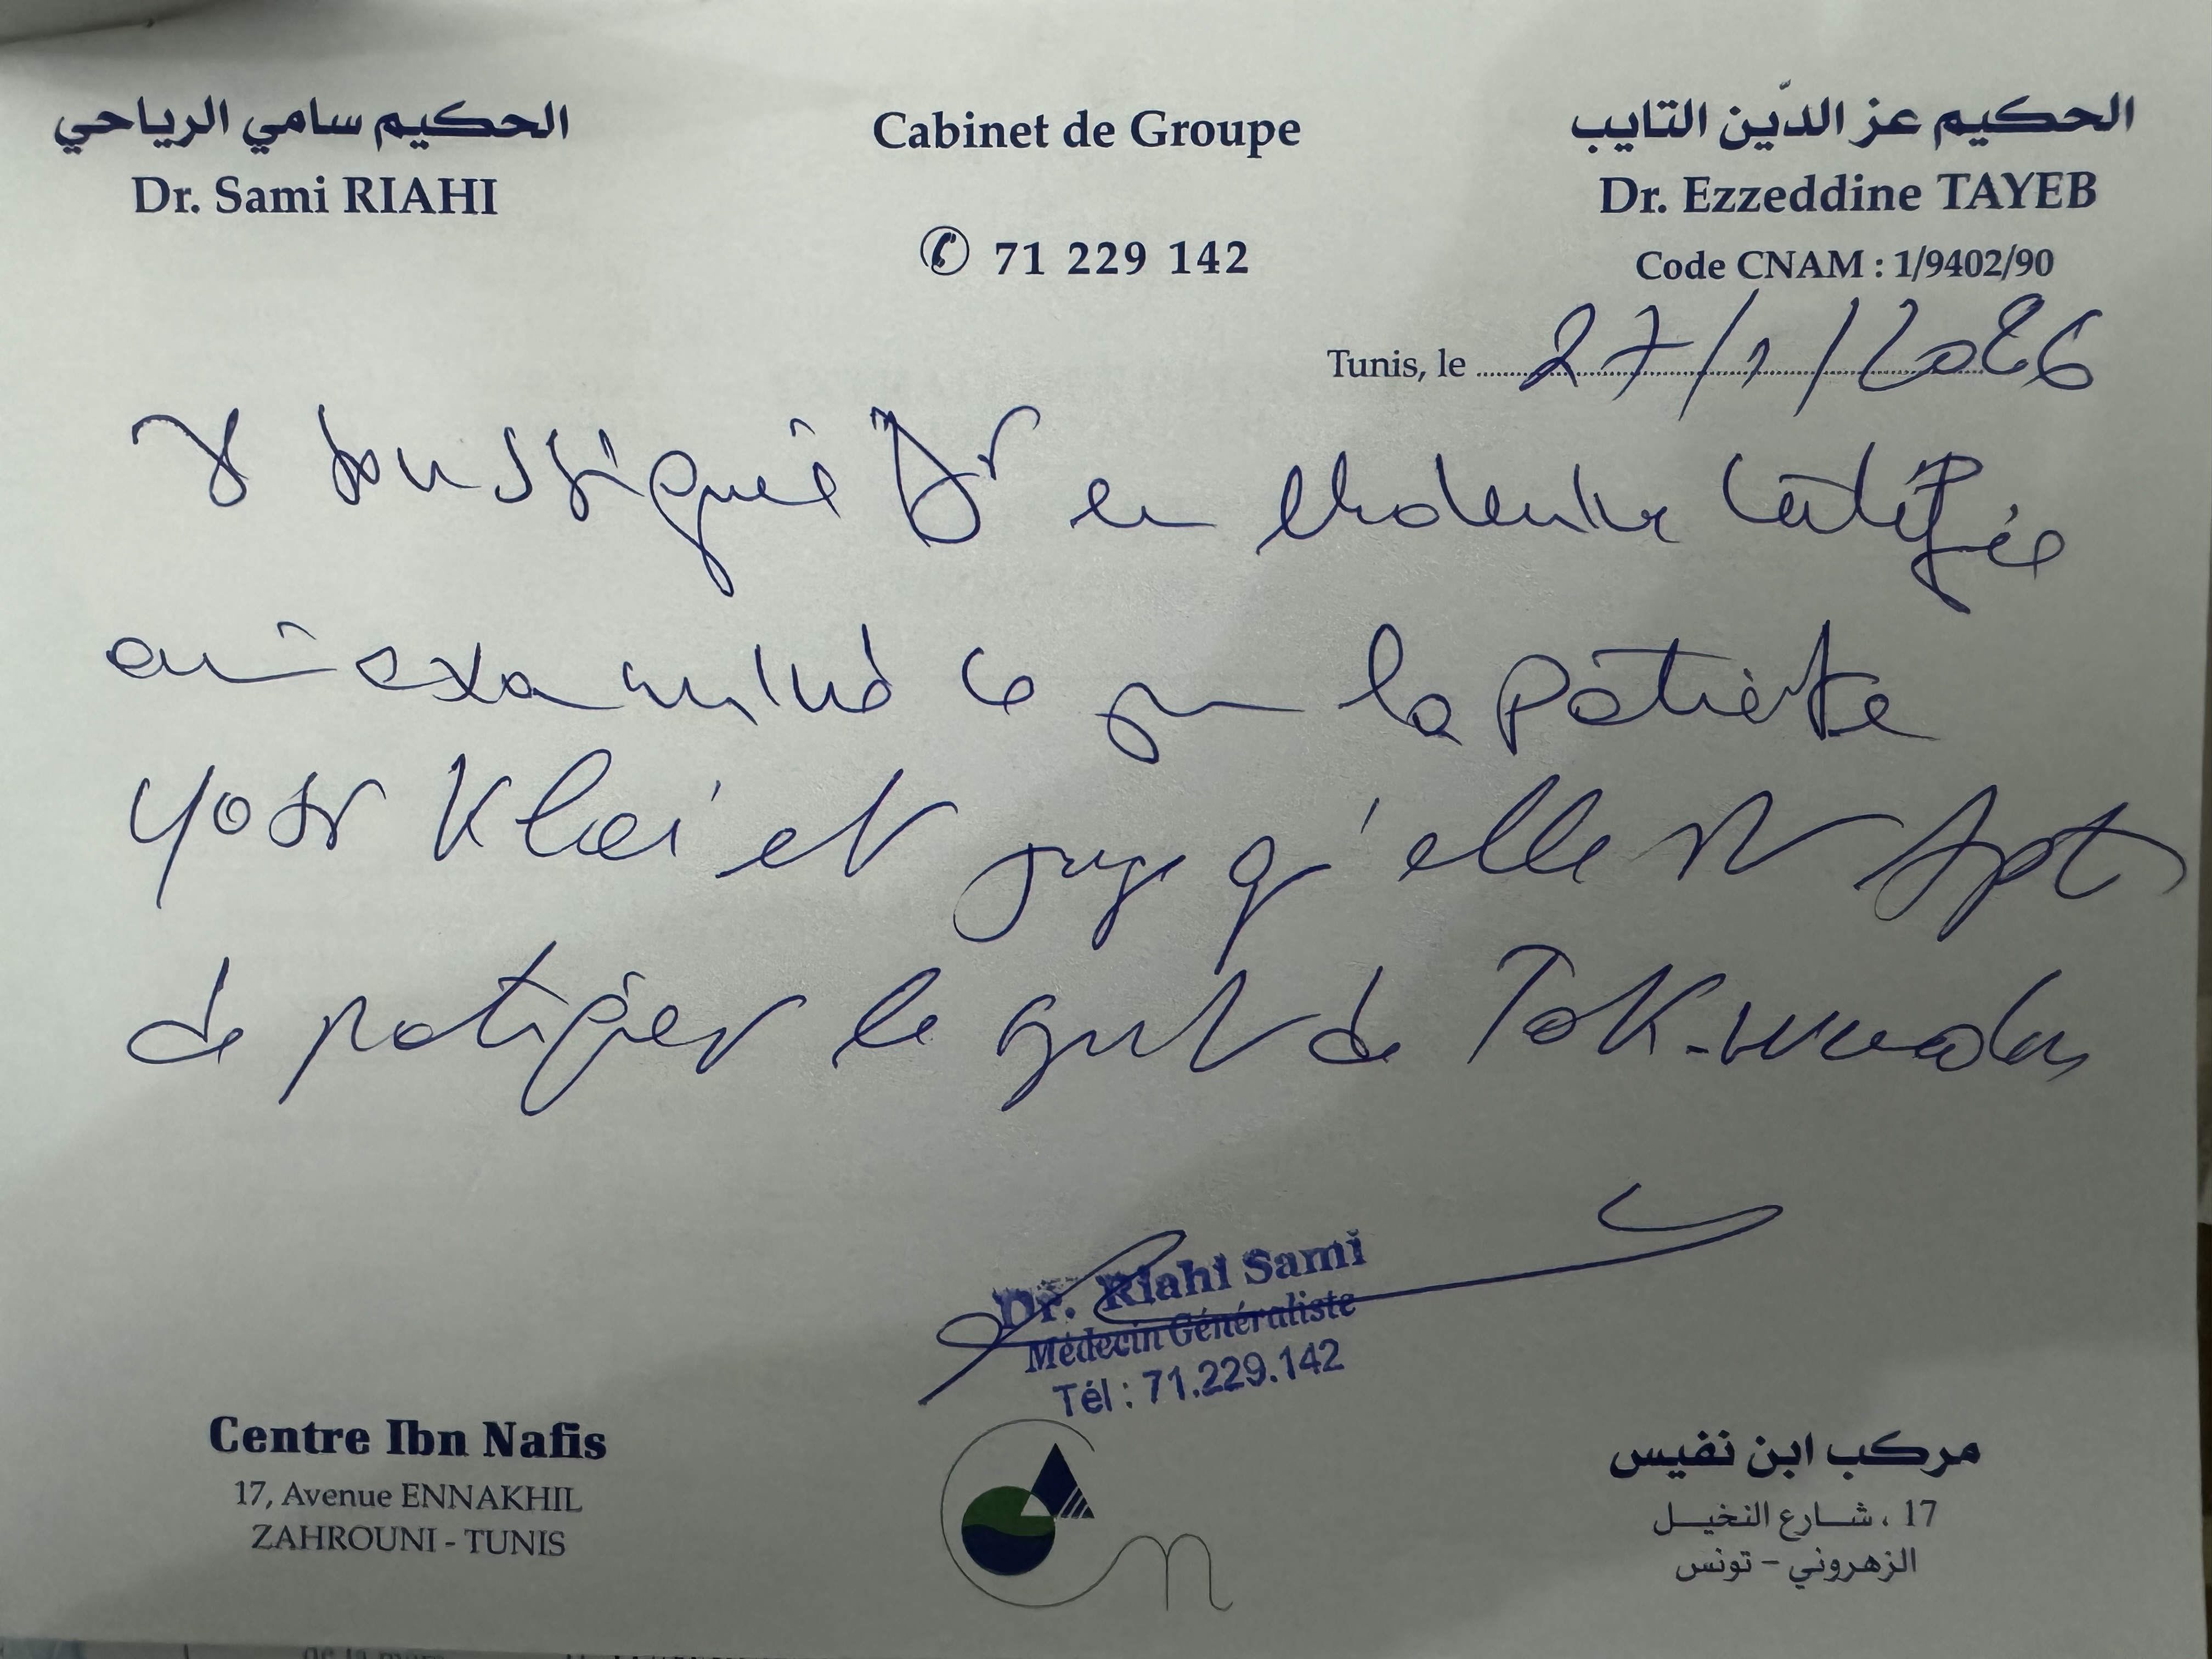 الحكيم سامي الرياحي
Dr. Sami RIAHI
Cabinet de Groupe
71 229 142
الحكيم عز الدّين التايب
Dr. Ezzeddine TAYEB
Code CNAM : 1/9402/90
Tunis, le 27/1/2026
Je soussigné Dr en Médecine certifie
avoir examiné ce jour la patiente
Yosr et juge qu'elle est Apte
de pratiquer le de
Dr. Riahi Sami
Médecin Généraliste
Tél : 71.229.142
Centre Ibn Nafis
17, Avenue ENNAKHIL
ZAHROUNI - TUNIS
مركب ابن نفيس
17 ، شارع النخيل
الزهروني - تونس